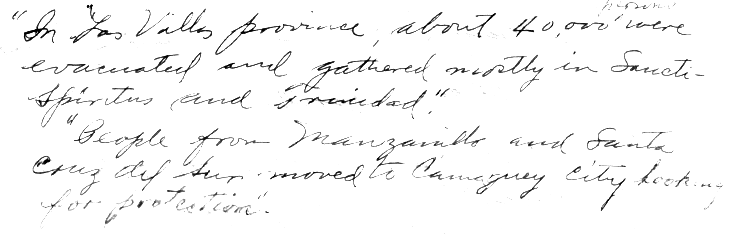 "In "Las Villas province, about 40,000 were
evacuated and gathered mostly in Sancti-
Spiritus and Trinidad".
"People from Manzanillo and Santa
Cruz del Sur moved to Camaguey City looking
for protection".